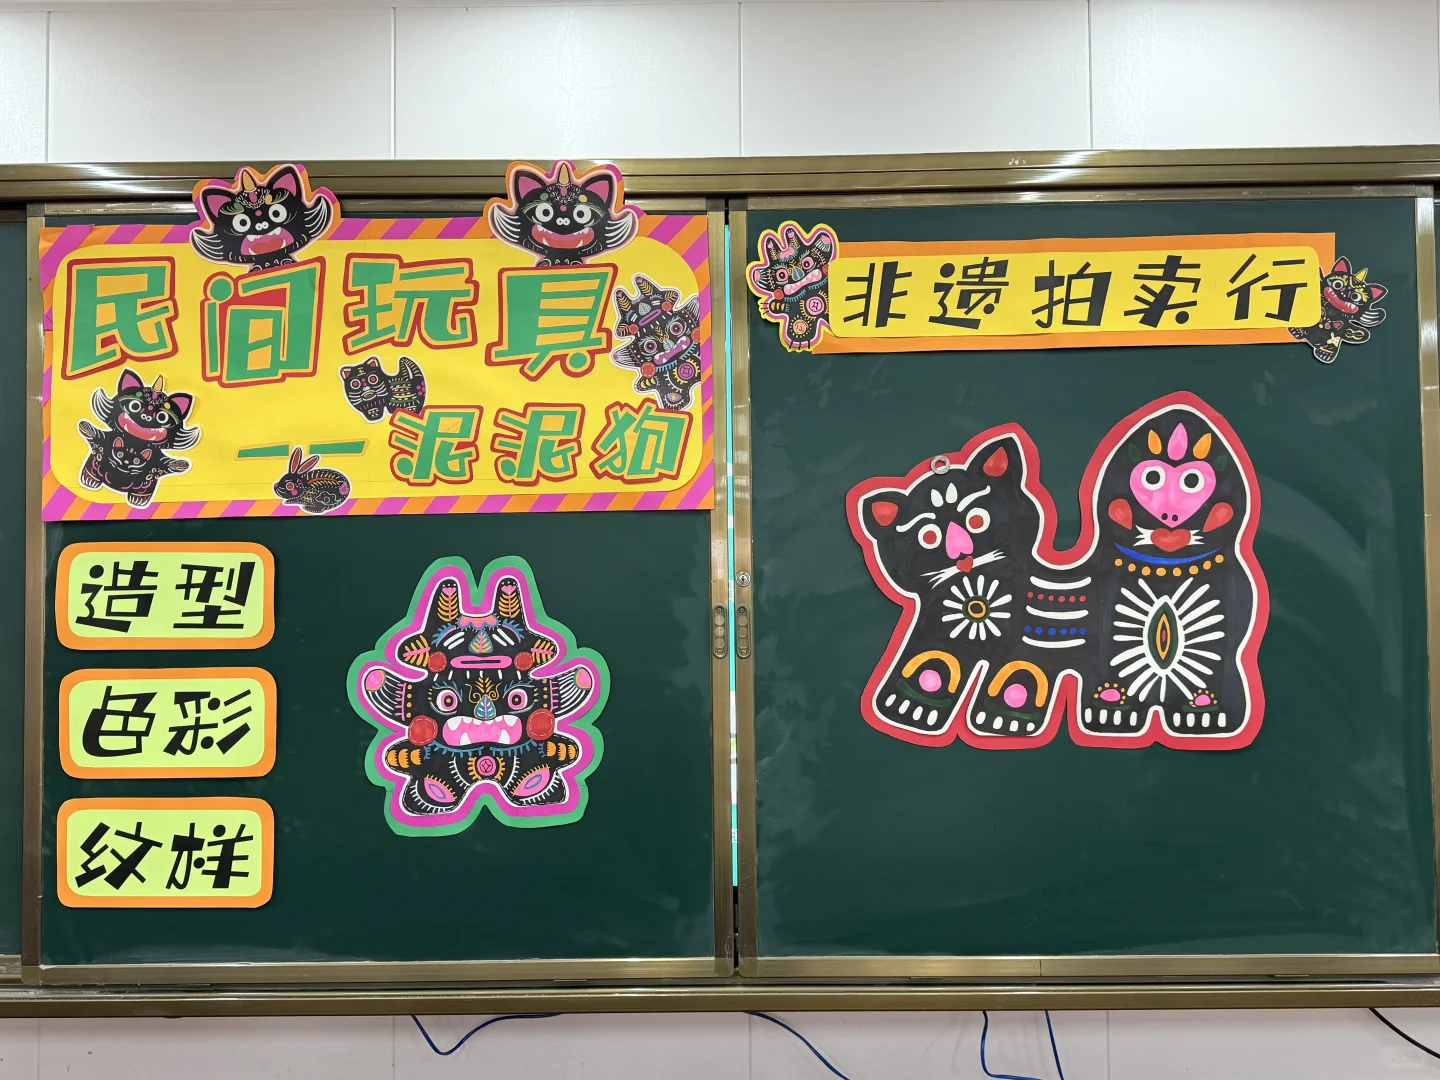 民间玩具
——泥泥狗
造型
色彩
纹样
非遗拍卖行